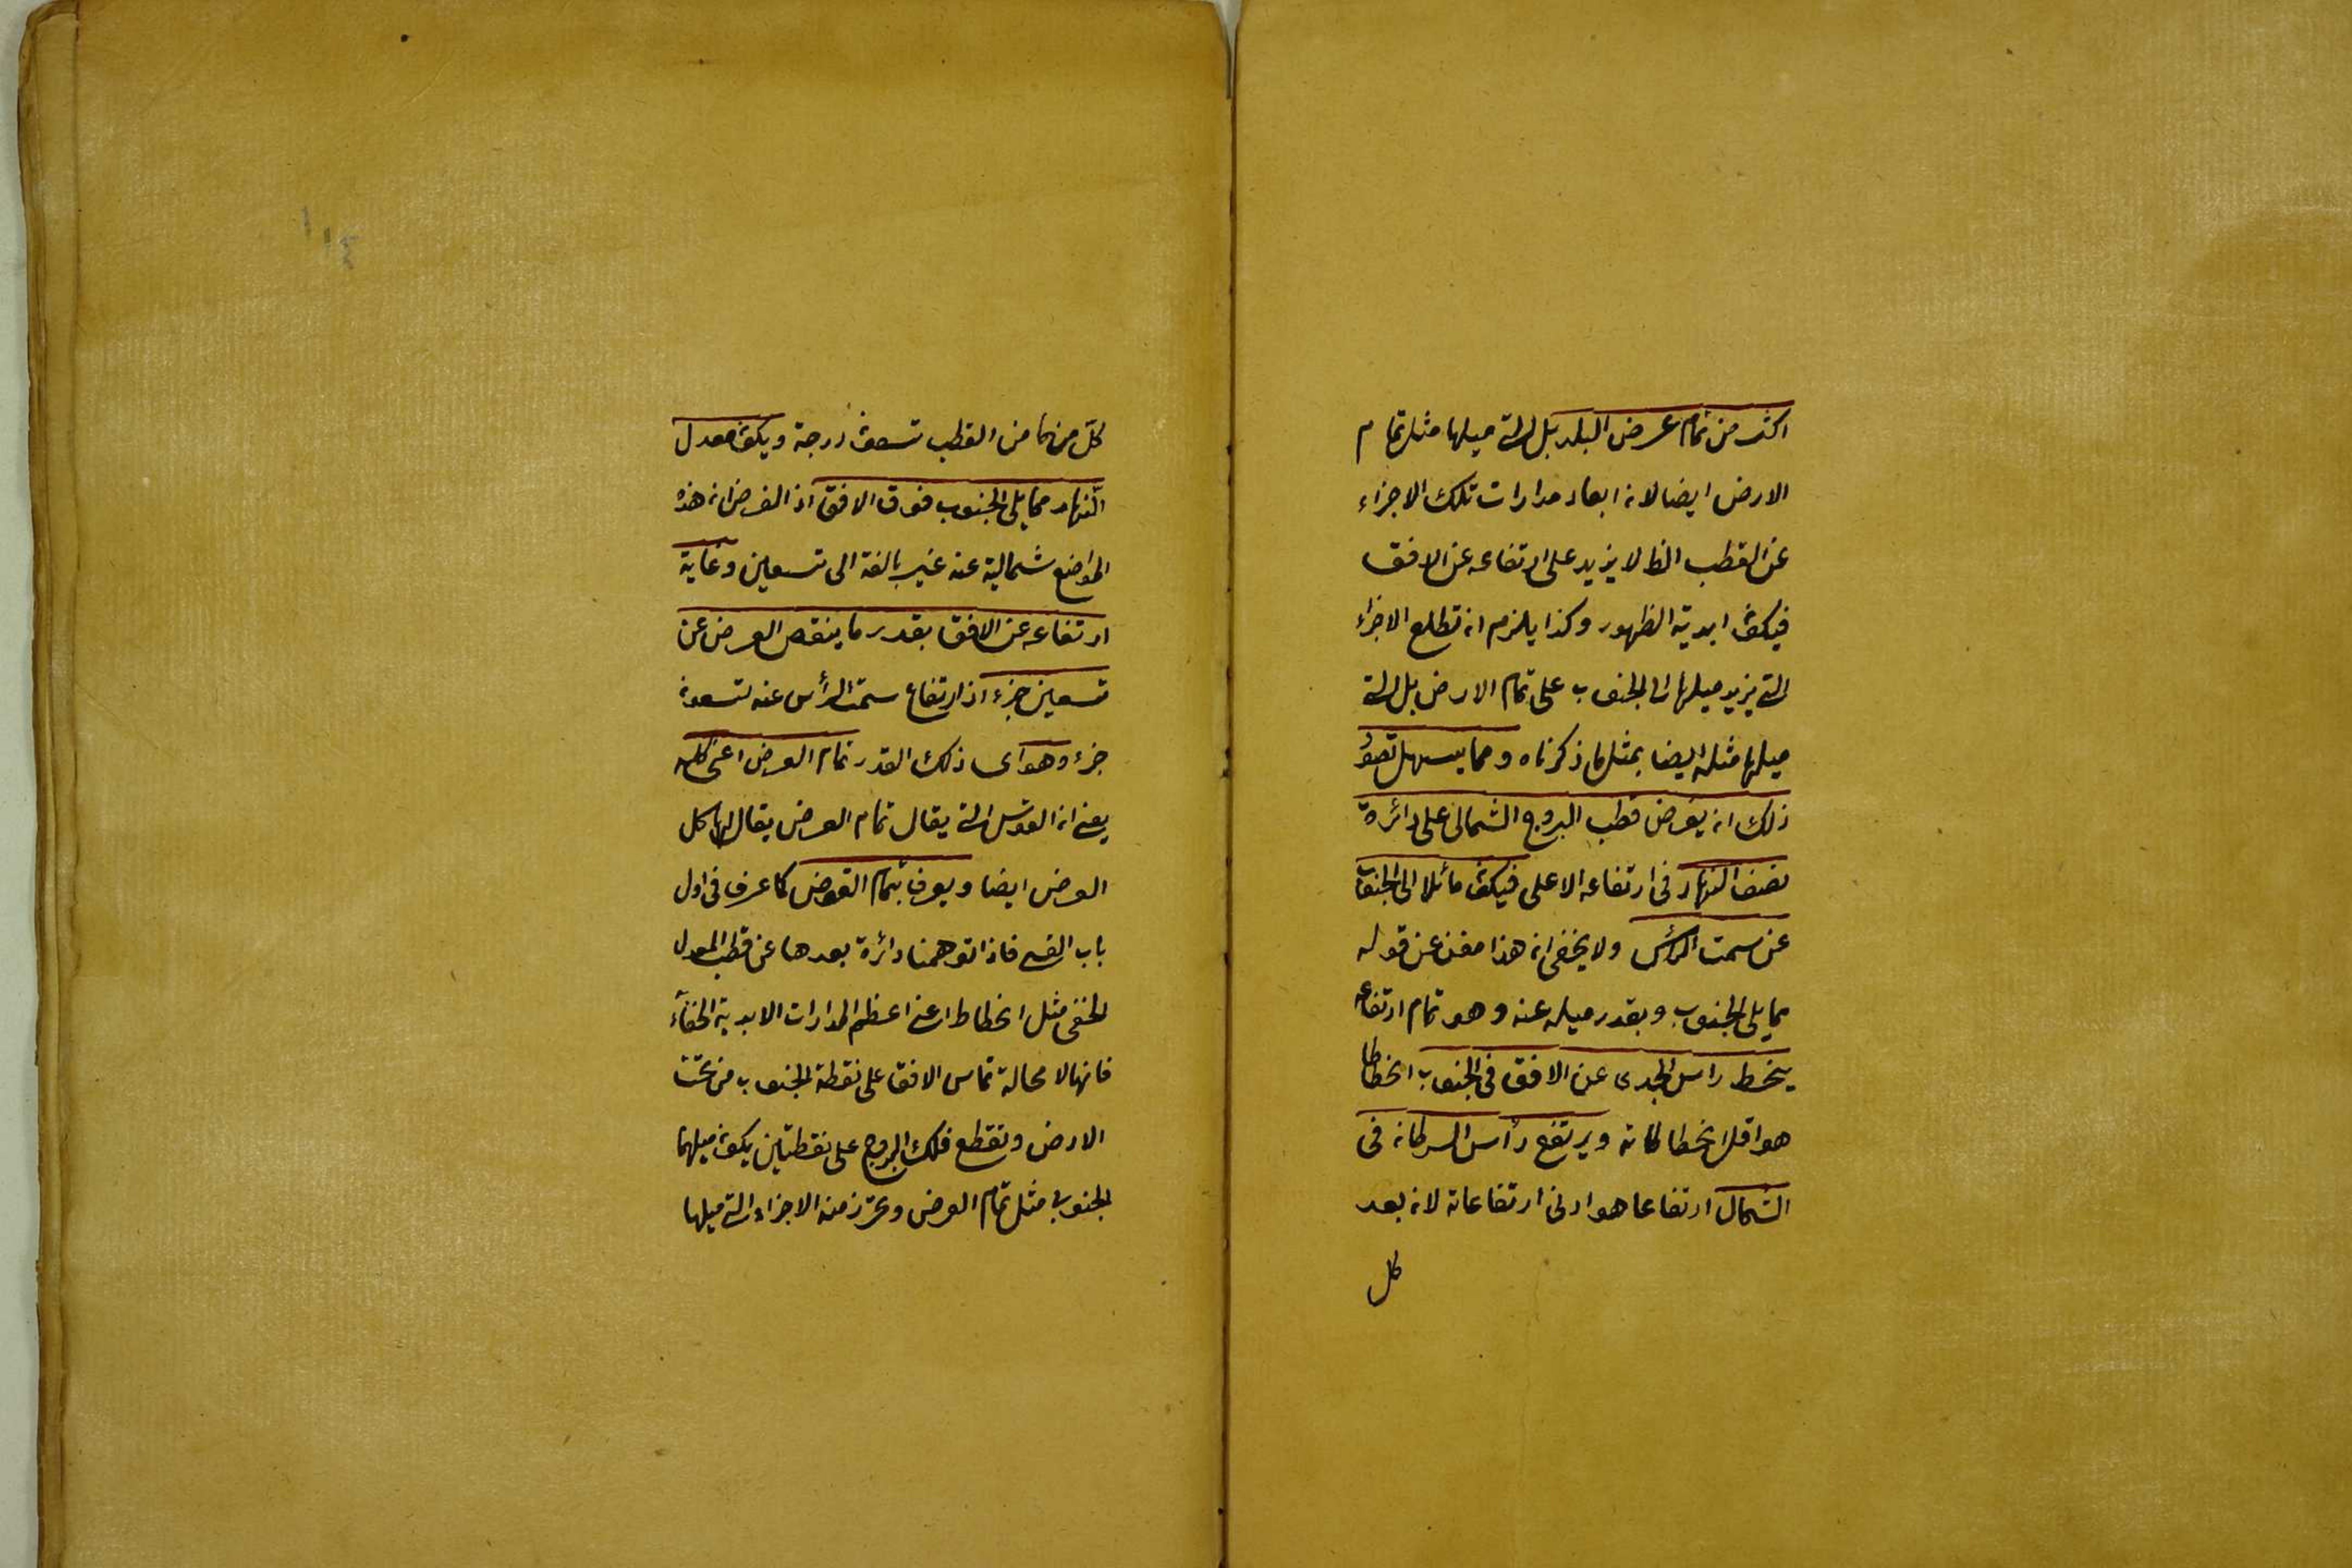 اكثر من تمام عرض البلد بل التي ميلها مثل تمام
الارض ايضا لان ابعاد مدارات تلك الاجزاء
عن القطب الظ لا يزيد على ارتفاعه عن الافق
فيكون ابدية الظهور وكذا يلزم ان تطلع الاجزاء
التي يزيد ميلها الى الجنوب على تمام الارض بل التي
ميلها مثله ايضا بمثل ما ذكرناه ومما يسهل تصور
ذلك ان يفرض قطب البروج الشمالى على دائرة
نصف النهار فى ارتفاعه الاعلى فيكون مائلا الى الجنوب
عن سمت الرأس ولا يخفى ان هذا مغن عن قوله
مما يلى الجنوب وبقدر ميله عنه وهو تمام ارتفاعه
ينحط راس الجدى عن الافق فى الجنوب انحطاطا
هو اقل انحطاطاته ويرتفع رأس السرطان فى
الشمال ارتفاعا هو ادنى ارتفاعاته لان بعد
كل
كلّ منهما من القطب تسعون درجة ويكون معدل
النّهار مما يلى الجنوب فوق الافق اذ الفرض ان هذه
المواضع شمالية عنه غير بالغة الى تسعين وغاية
ارتفاعه عن الافق بقدر ما ينقص العرض عن
تسعين جزء اذ ارتفاع سمت الرأس عنه تسعون
جزء وهو اى ذلك القدر تمام العرض اعنى كله
يعنى ان القوس التي يقال تمام العرض يقال لها كل
العرض ايضا ويعرف بتمام القوس كما عرف فى اول
باب القسى فاذا توهمنا دائرة بعدها عن قطب المعدل
الخفى مثل انحطاطه اعنى اعظم المدارات الابدية الخفآء
فانها لا محالة تماس الافق على نقطة الجنوب من تحت
الارض وتقطع فلك البروج على نقطتين يكون ميلهما
الجنوبى مثل تمام العرض وتحرز منه الاجزاء التي ميلها